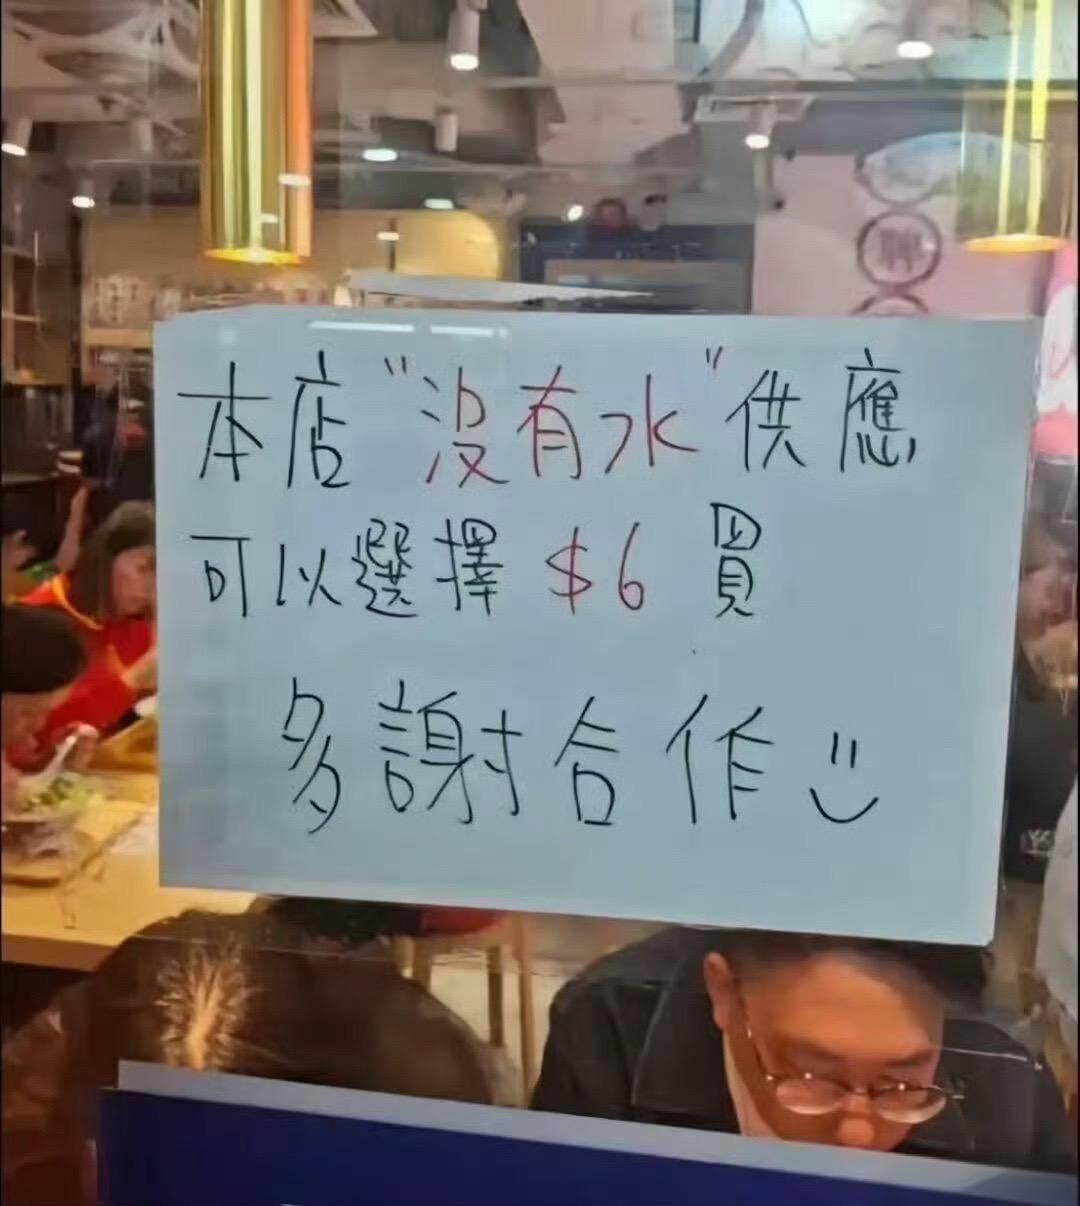 本店"沒有水"供應
可以選擇 $6 買
多謝合作